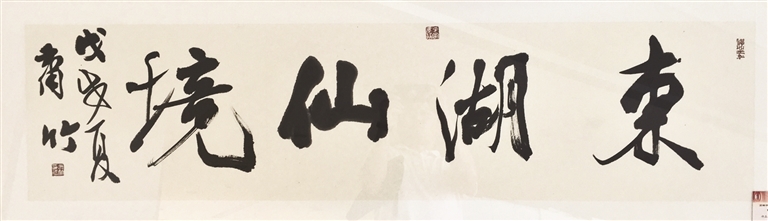 東湖仙境
戊戌夏
肅竹